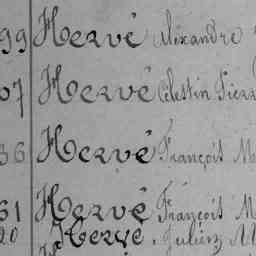 99 Hervé Alexandre
07 Hervé Célestin Pierr
36 Hervé François M
61 Hervé François M
20 Hervé, Julien M